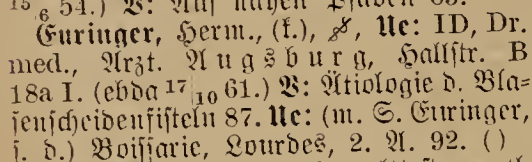 15/6 54.) V: Auf nahen Pfaden 65.
Euringer, Herm., (k.), Ue: ID, Dr.
med., Arzt. Augsburg, Hallstr. B
18a I. (ebda 17/10 61.) V: Ätiologie d. Bla=
senscheidenfisteln 87. Ue: (m. S. Euringer,
s. d.) Boissarie, Lourdes, 2. A. 92. ()